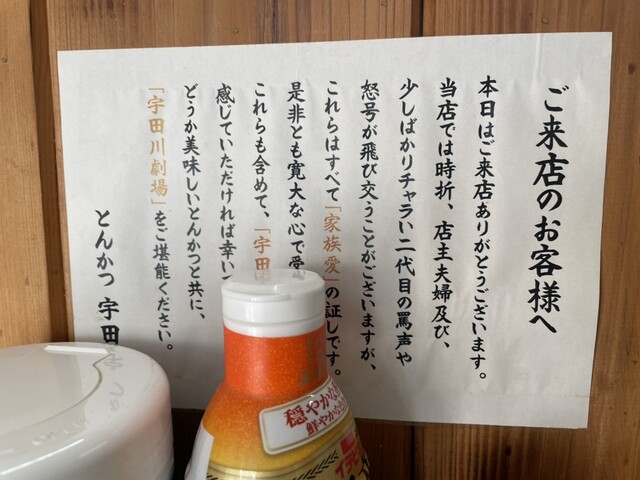 ご来店のお客様へ
本日はご来店ありがとうございます。
当店では時折、店主夫婦及び、
少しばかりチャラい二代目の罵声や
怒号が飛び交うことがございますが、
これらはすべて「家族愛」の証しです。
是非とも寛大な心で受
これらも含めて、「宇田
感じていただければ幸いで
どうか美味しいとんかつと共に、
「宇田川劇場」をご堪能ください。
とんかつ 宇田
穏やかな
鮮やかな